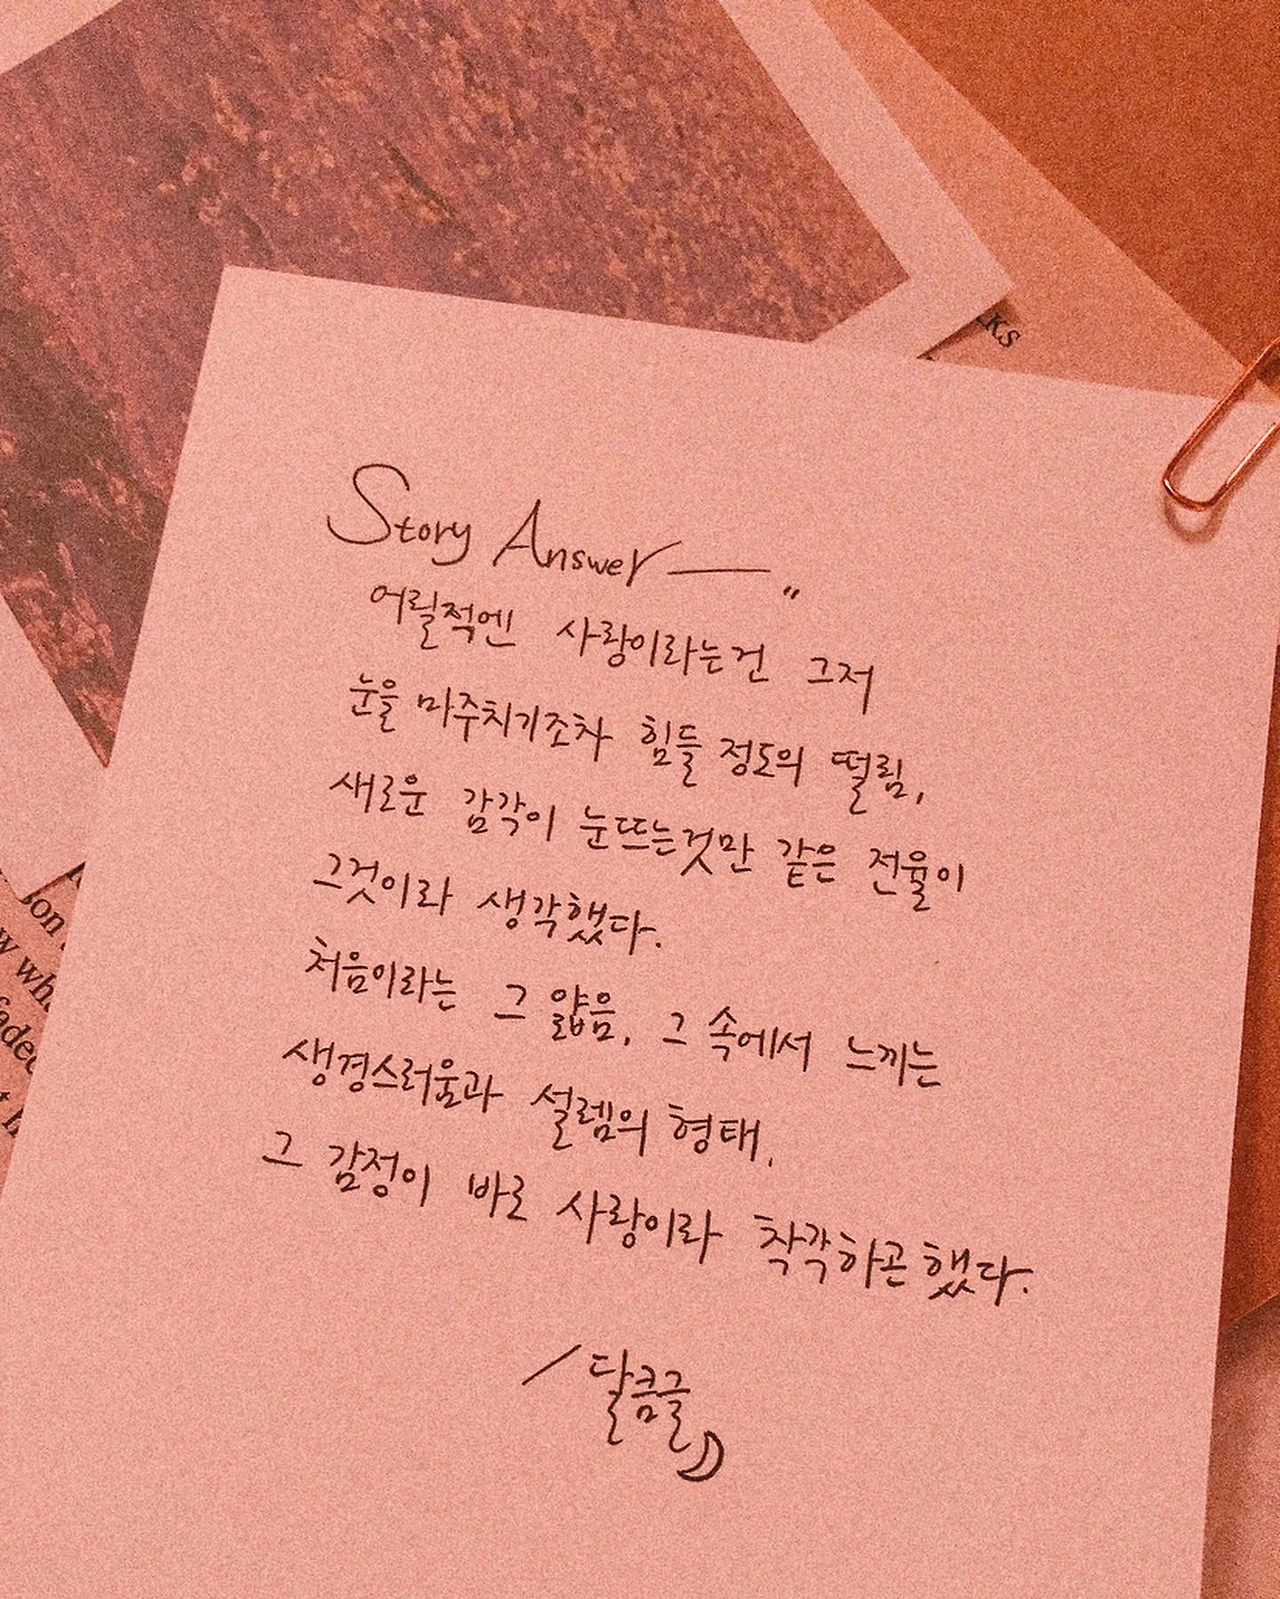 ks
Story Answer — "
어릴적엔 사랑이라는건 그저
눈을 마주치기조차 힘들 정도의 떨림,
새로운 감각이 눈뜨는것만 같은 전율이
그것이라 생각했다.
처음이라는 그 얇음, 그 속에서 느끼는
생경스러움과 설렘의 형태,
그 감정이 바로 사랑이라 착각하곤했다.
/ 달큼글
son
w wh
fadec